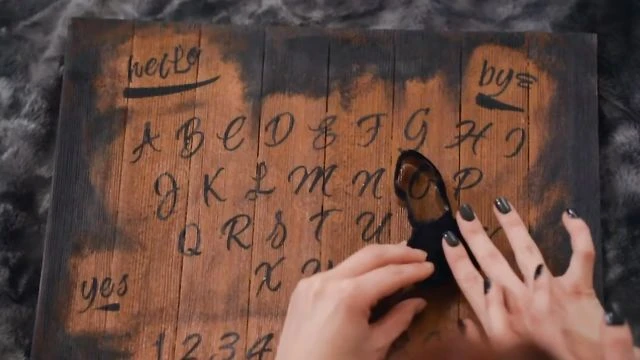 hello bye
A B C D E F G H I
J K L M N O P
Q R S T U
X
yes
1 2 3 4